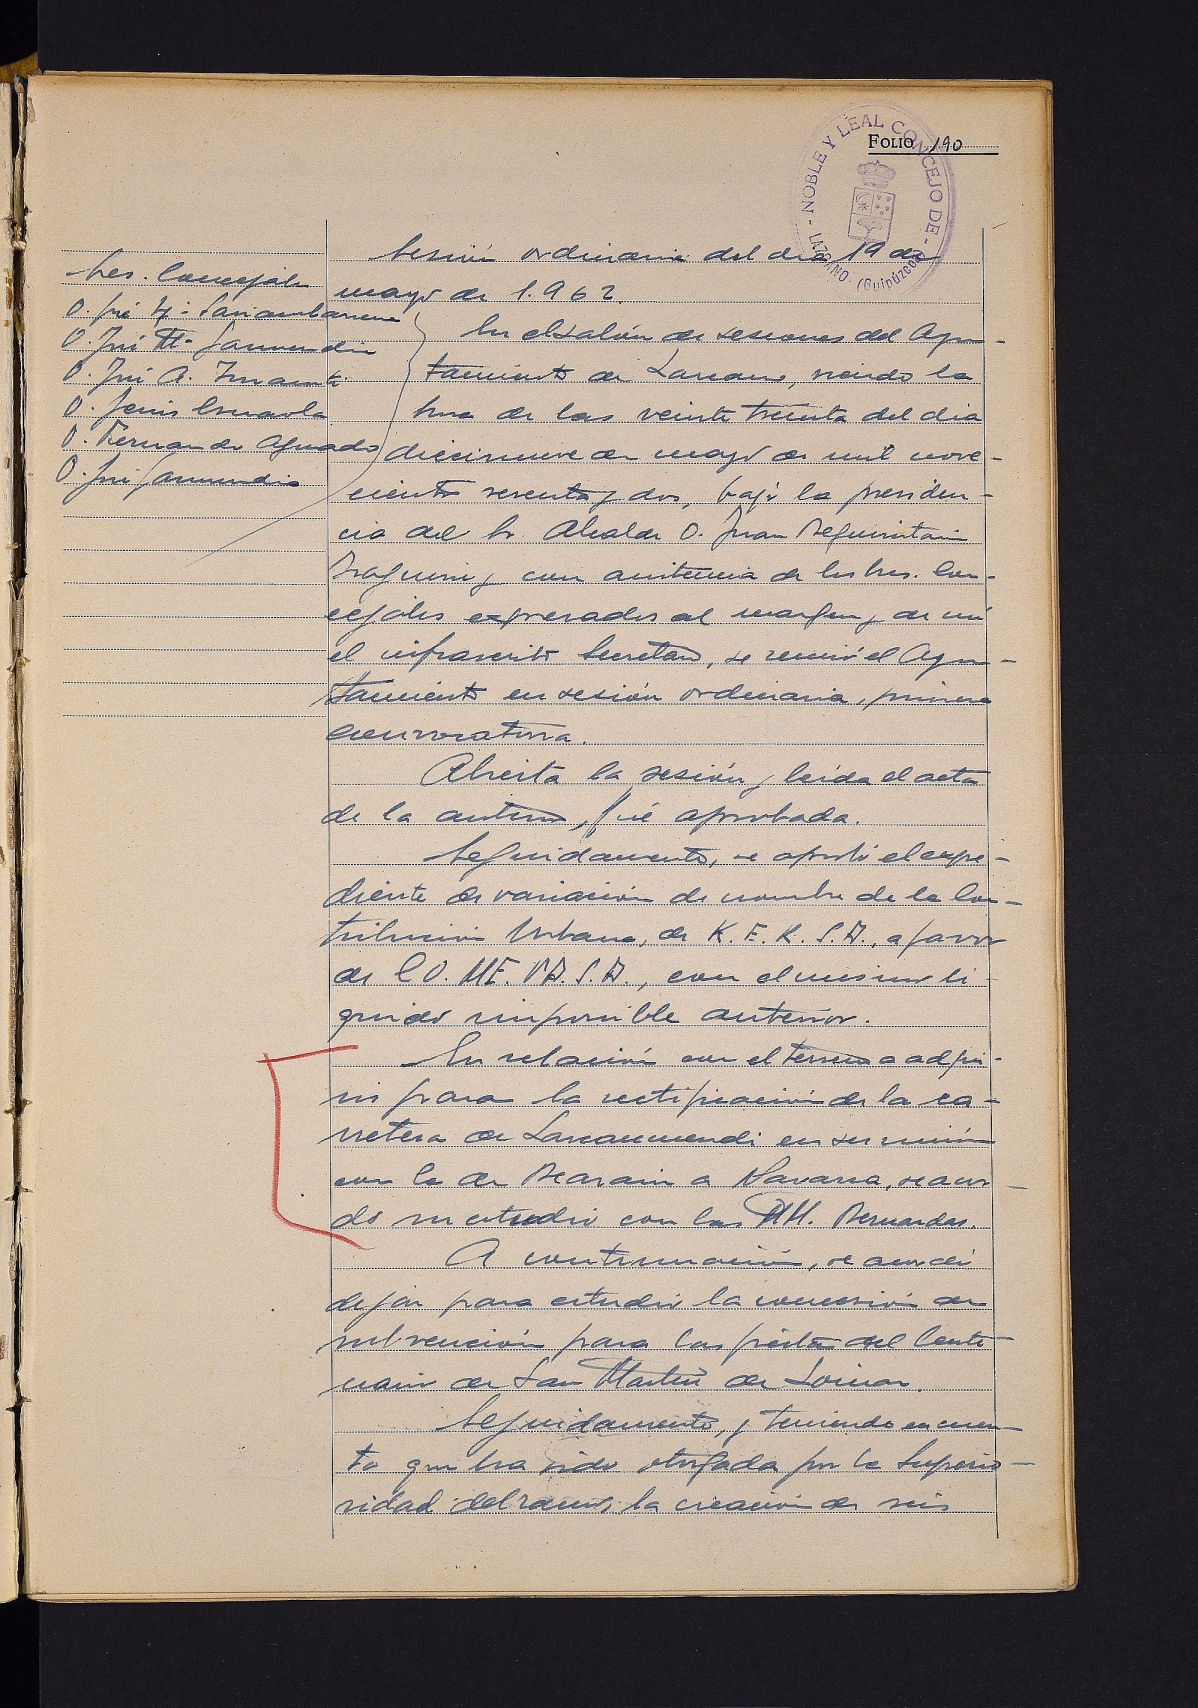 FOLIO 190
- NOBLE Y LEAL CONCEJO DE -
LAZCANO. (Guipúzcoa)
Sres. Concejales
D. José
D. José Mª Garmendia
D. José A.
D. Jesús
D. Fernando Aguado
D. José Garmendia
Sesión ordinaria del día 19 de
mayo de 1.962.
En el salón de sesiones del Ayun-
tamiento de Lazcano, siendo la
hora de las veinte treinta del día
diecinueve de mayo de mil nove-
cientos sesenta y dos, bajo la presiden-
cia del Sr. Alcalde D. Juan Beguiristain
y con asistencia de los Sres. Con-
cejales expresados al margen y de mi
el infrascrito Secretario, se reunió el Ayun-
tamiento en sesión ordinaria, primera
convocatoria.
Abierta la sesión y leida el acta
de la anterior, fué aprobada.
Seguidamente, se aprobó el expe-
diente de variación de nombre de la Con-
tribución Urbana, de K.E.K.S.A., a favor
de CO.ME.VA.S.A., con el mismo lí-
quido imponible anterior.
En relación con el terreno a adqui-
rir para la rectificación de la ca-
rretera de Lazcaomendi en su unión
con la de Beasain a Navarra, se acor-
dó su estudio con las MM. Bernardas.
A continuación, se acordó
dejar para estudio la concesión de
subvención para las fiestas del Cente-
nario de San Martín de Loinaz.
Seguidamente, y teniendo en cuen-
ta que ha sido otorgada por la Superio-
ridad del ramo, la creación de seis